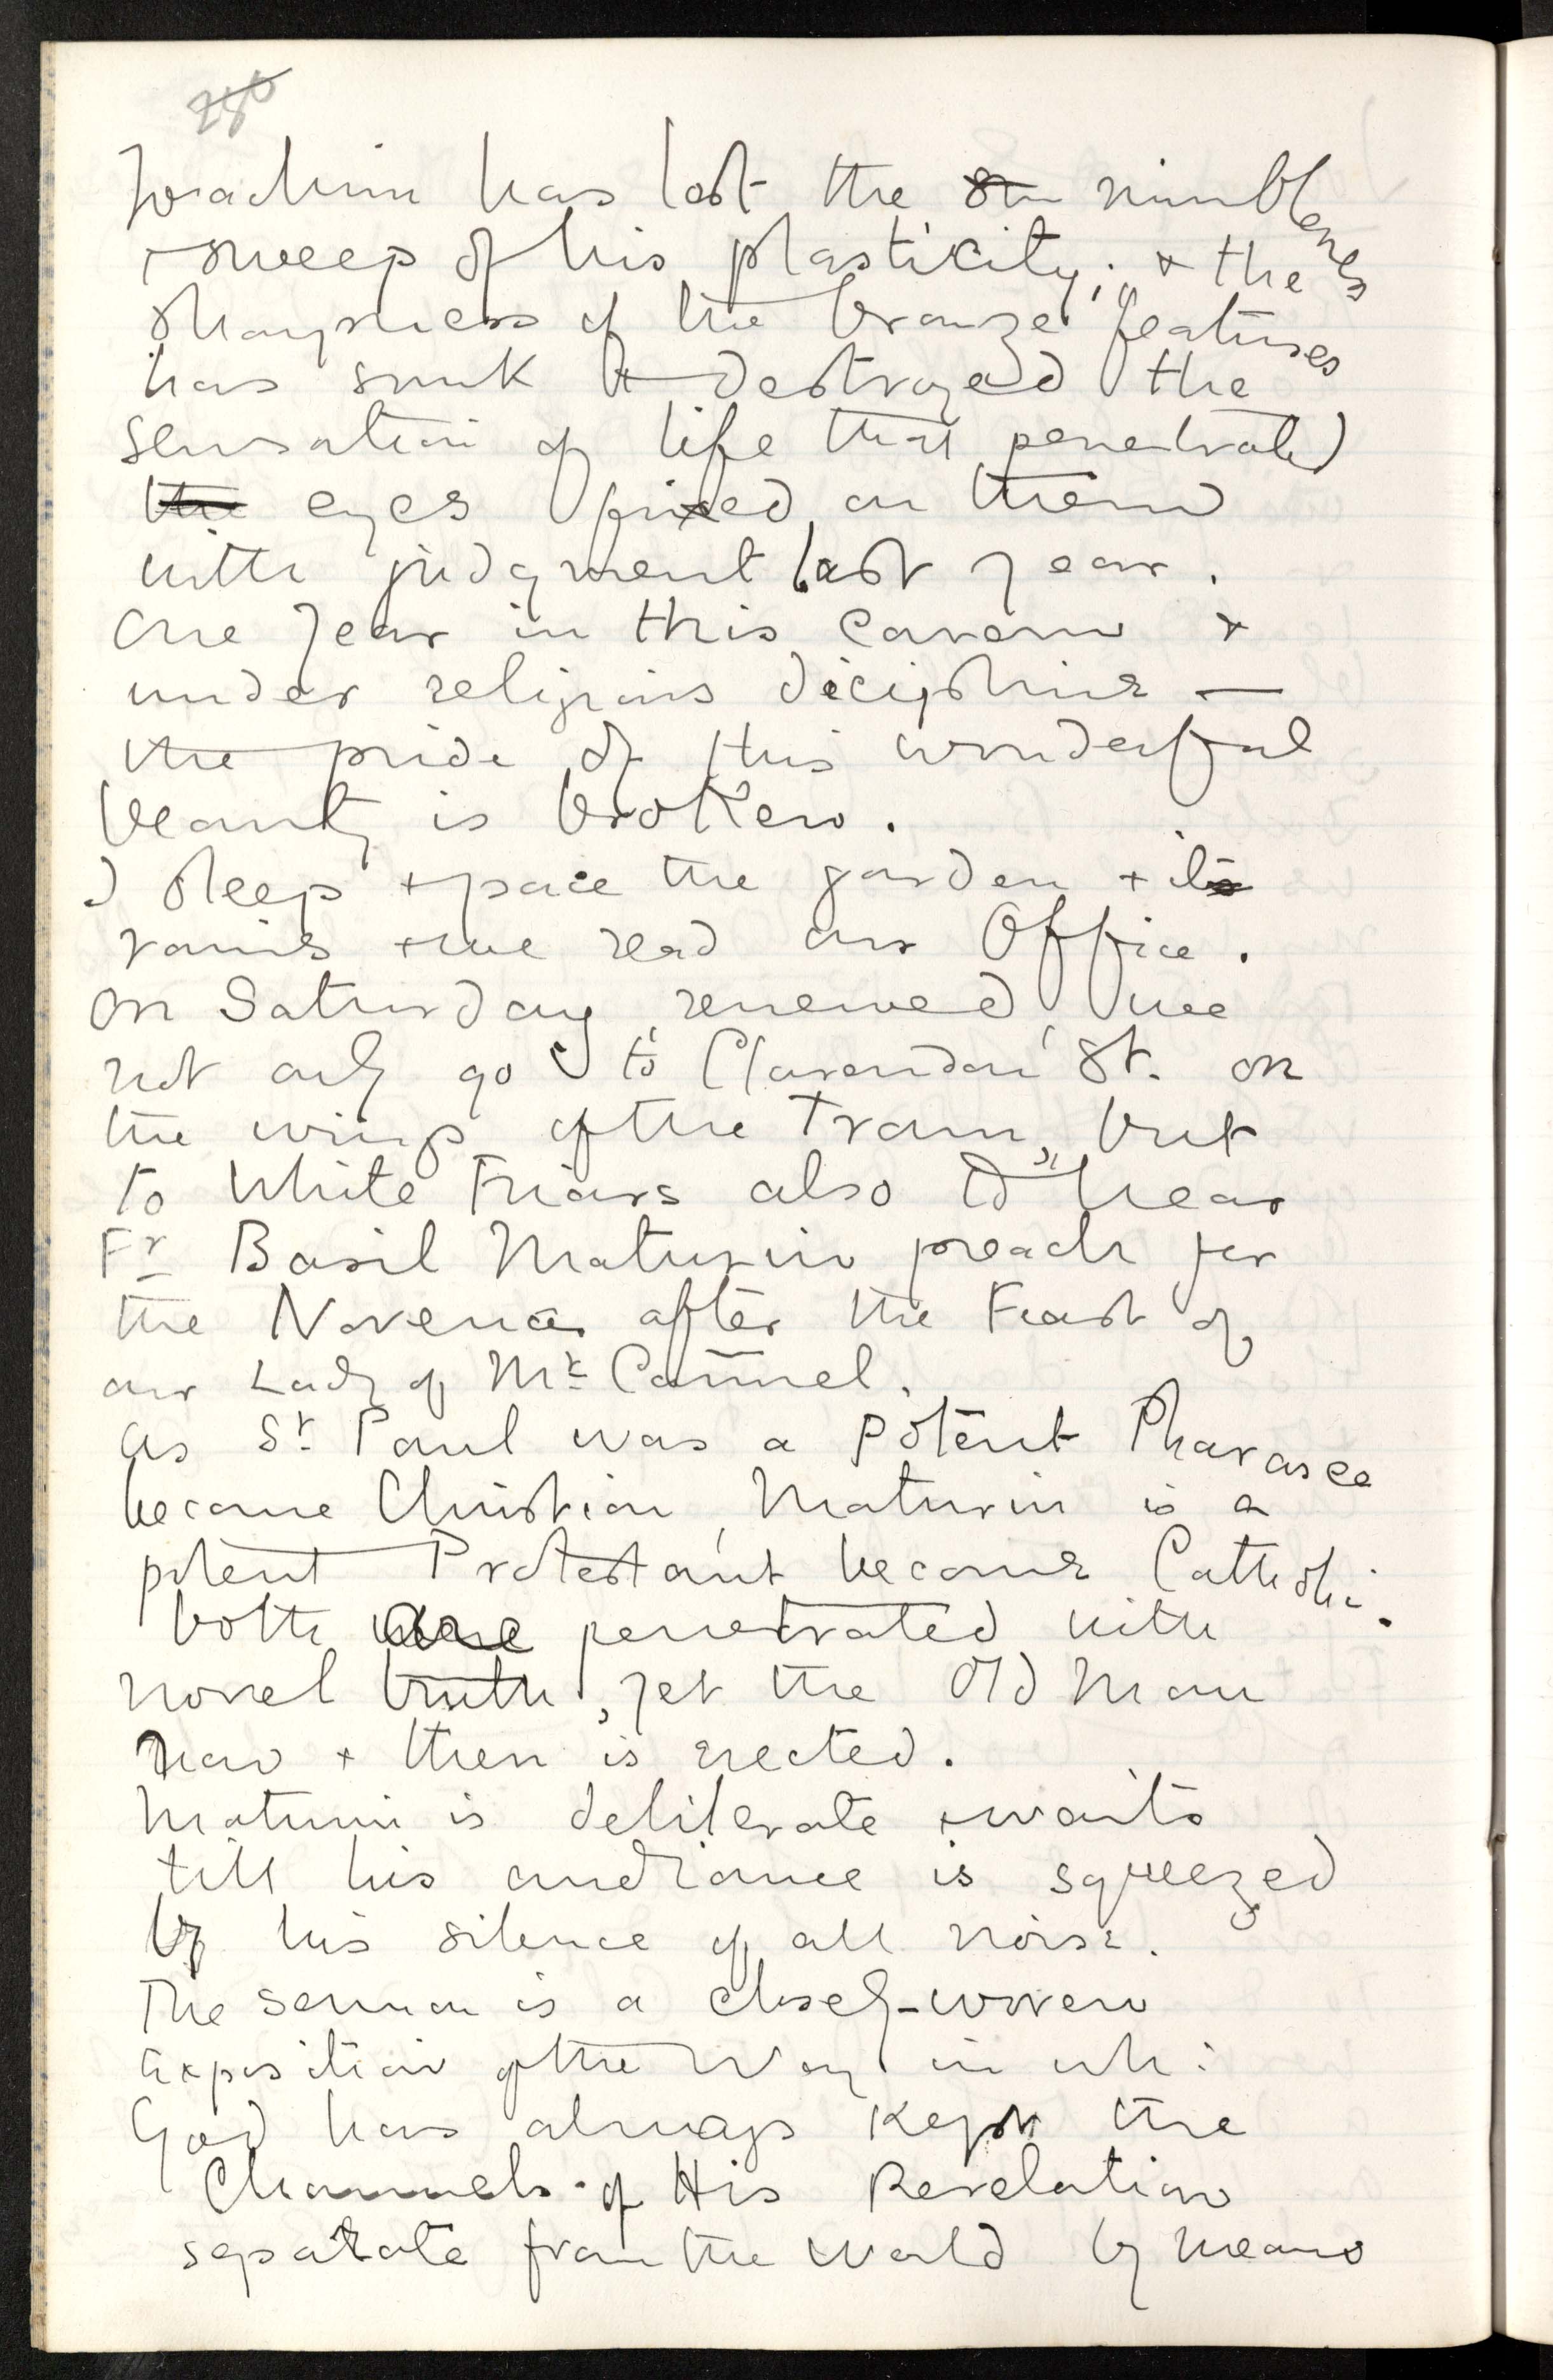 Joachim has lost the nimbleness
& sweep of his plasticity; & the
sharpness of the bronze features
has sunk & destroyed the
sensation of life that penetrated
the eyes fixed on them
with judgment last year.
One year in this cavern &
under religious discipline —
the pride of this wonderful
beauty is broken.
I sleep & pace the garden & it
rains & we read our Office.
On Saturday, renewed, we
not only go to Clarendon St. on
the wings of the Tram, but
to White Friars also to hear
Fr Basil Maturin preach for
the Novena after the Feast of
our Lady of Mt Carmel.
As St Paul was a potent Pharasee
become Christian, Maturin is a
potent Protestant become Catholic.
both are penetrated with
novel truth, yet the Old Man
now & then is erected.
Maturin is deliberate & waits
till his audiance is squeezed
by his silence of all noise.
The sermon is a closely-woven
exposition of the Way in wh:
God has always kept the
Channels of His Revelation
separate from the World by means